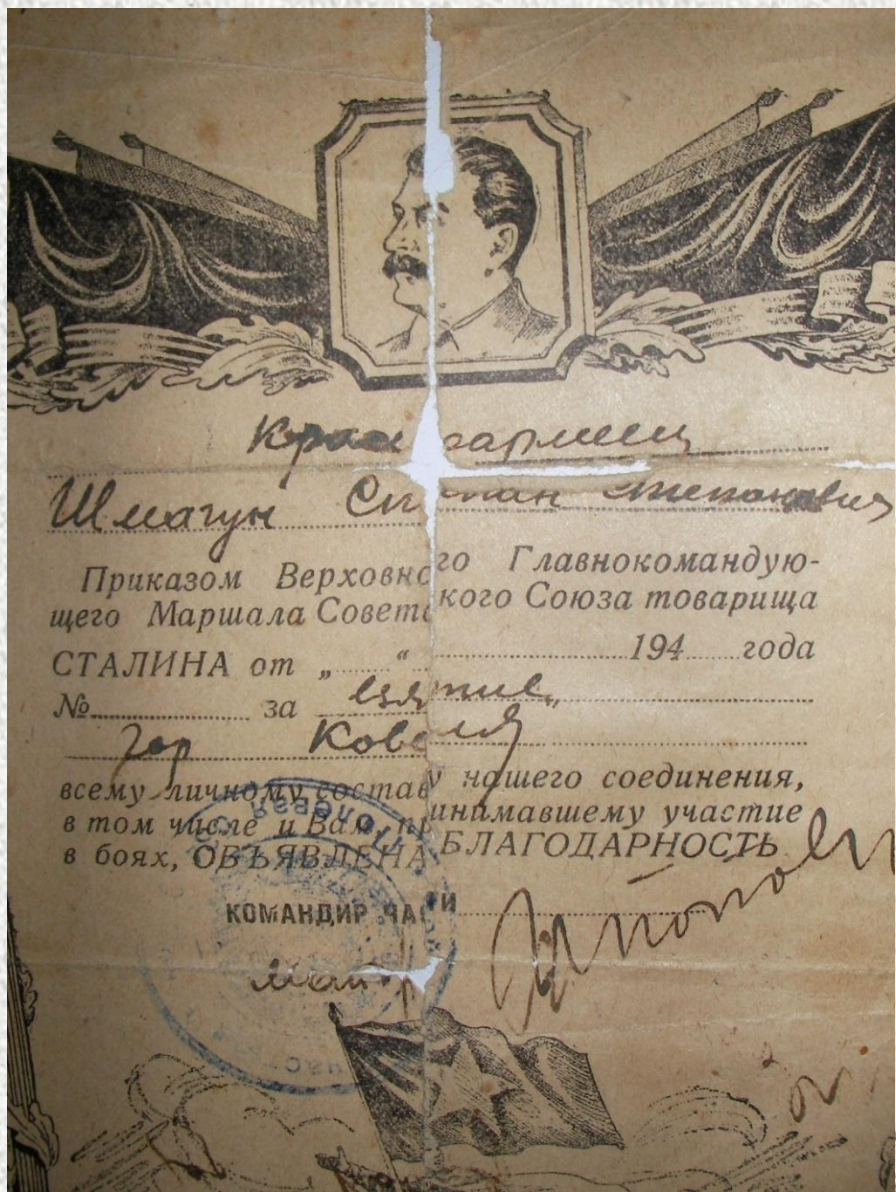 Красноармеец
Шмагун Степан Степанович
Приказом Верховного Главнокомандую-
щего Маршала Советского Союза товарища
СТАЛИНА от „ “ 194 года
№ за взятие
гор Ковеля
всему личному составу нашего соединения,
в том числе и Вам, принимавшему участие
в боях, ОБЪЯВЛЕНА БЛАГОДАРНОСТЬ
КОМАНДИР ЧАСТИ
Майор
Полевая